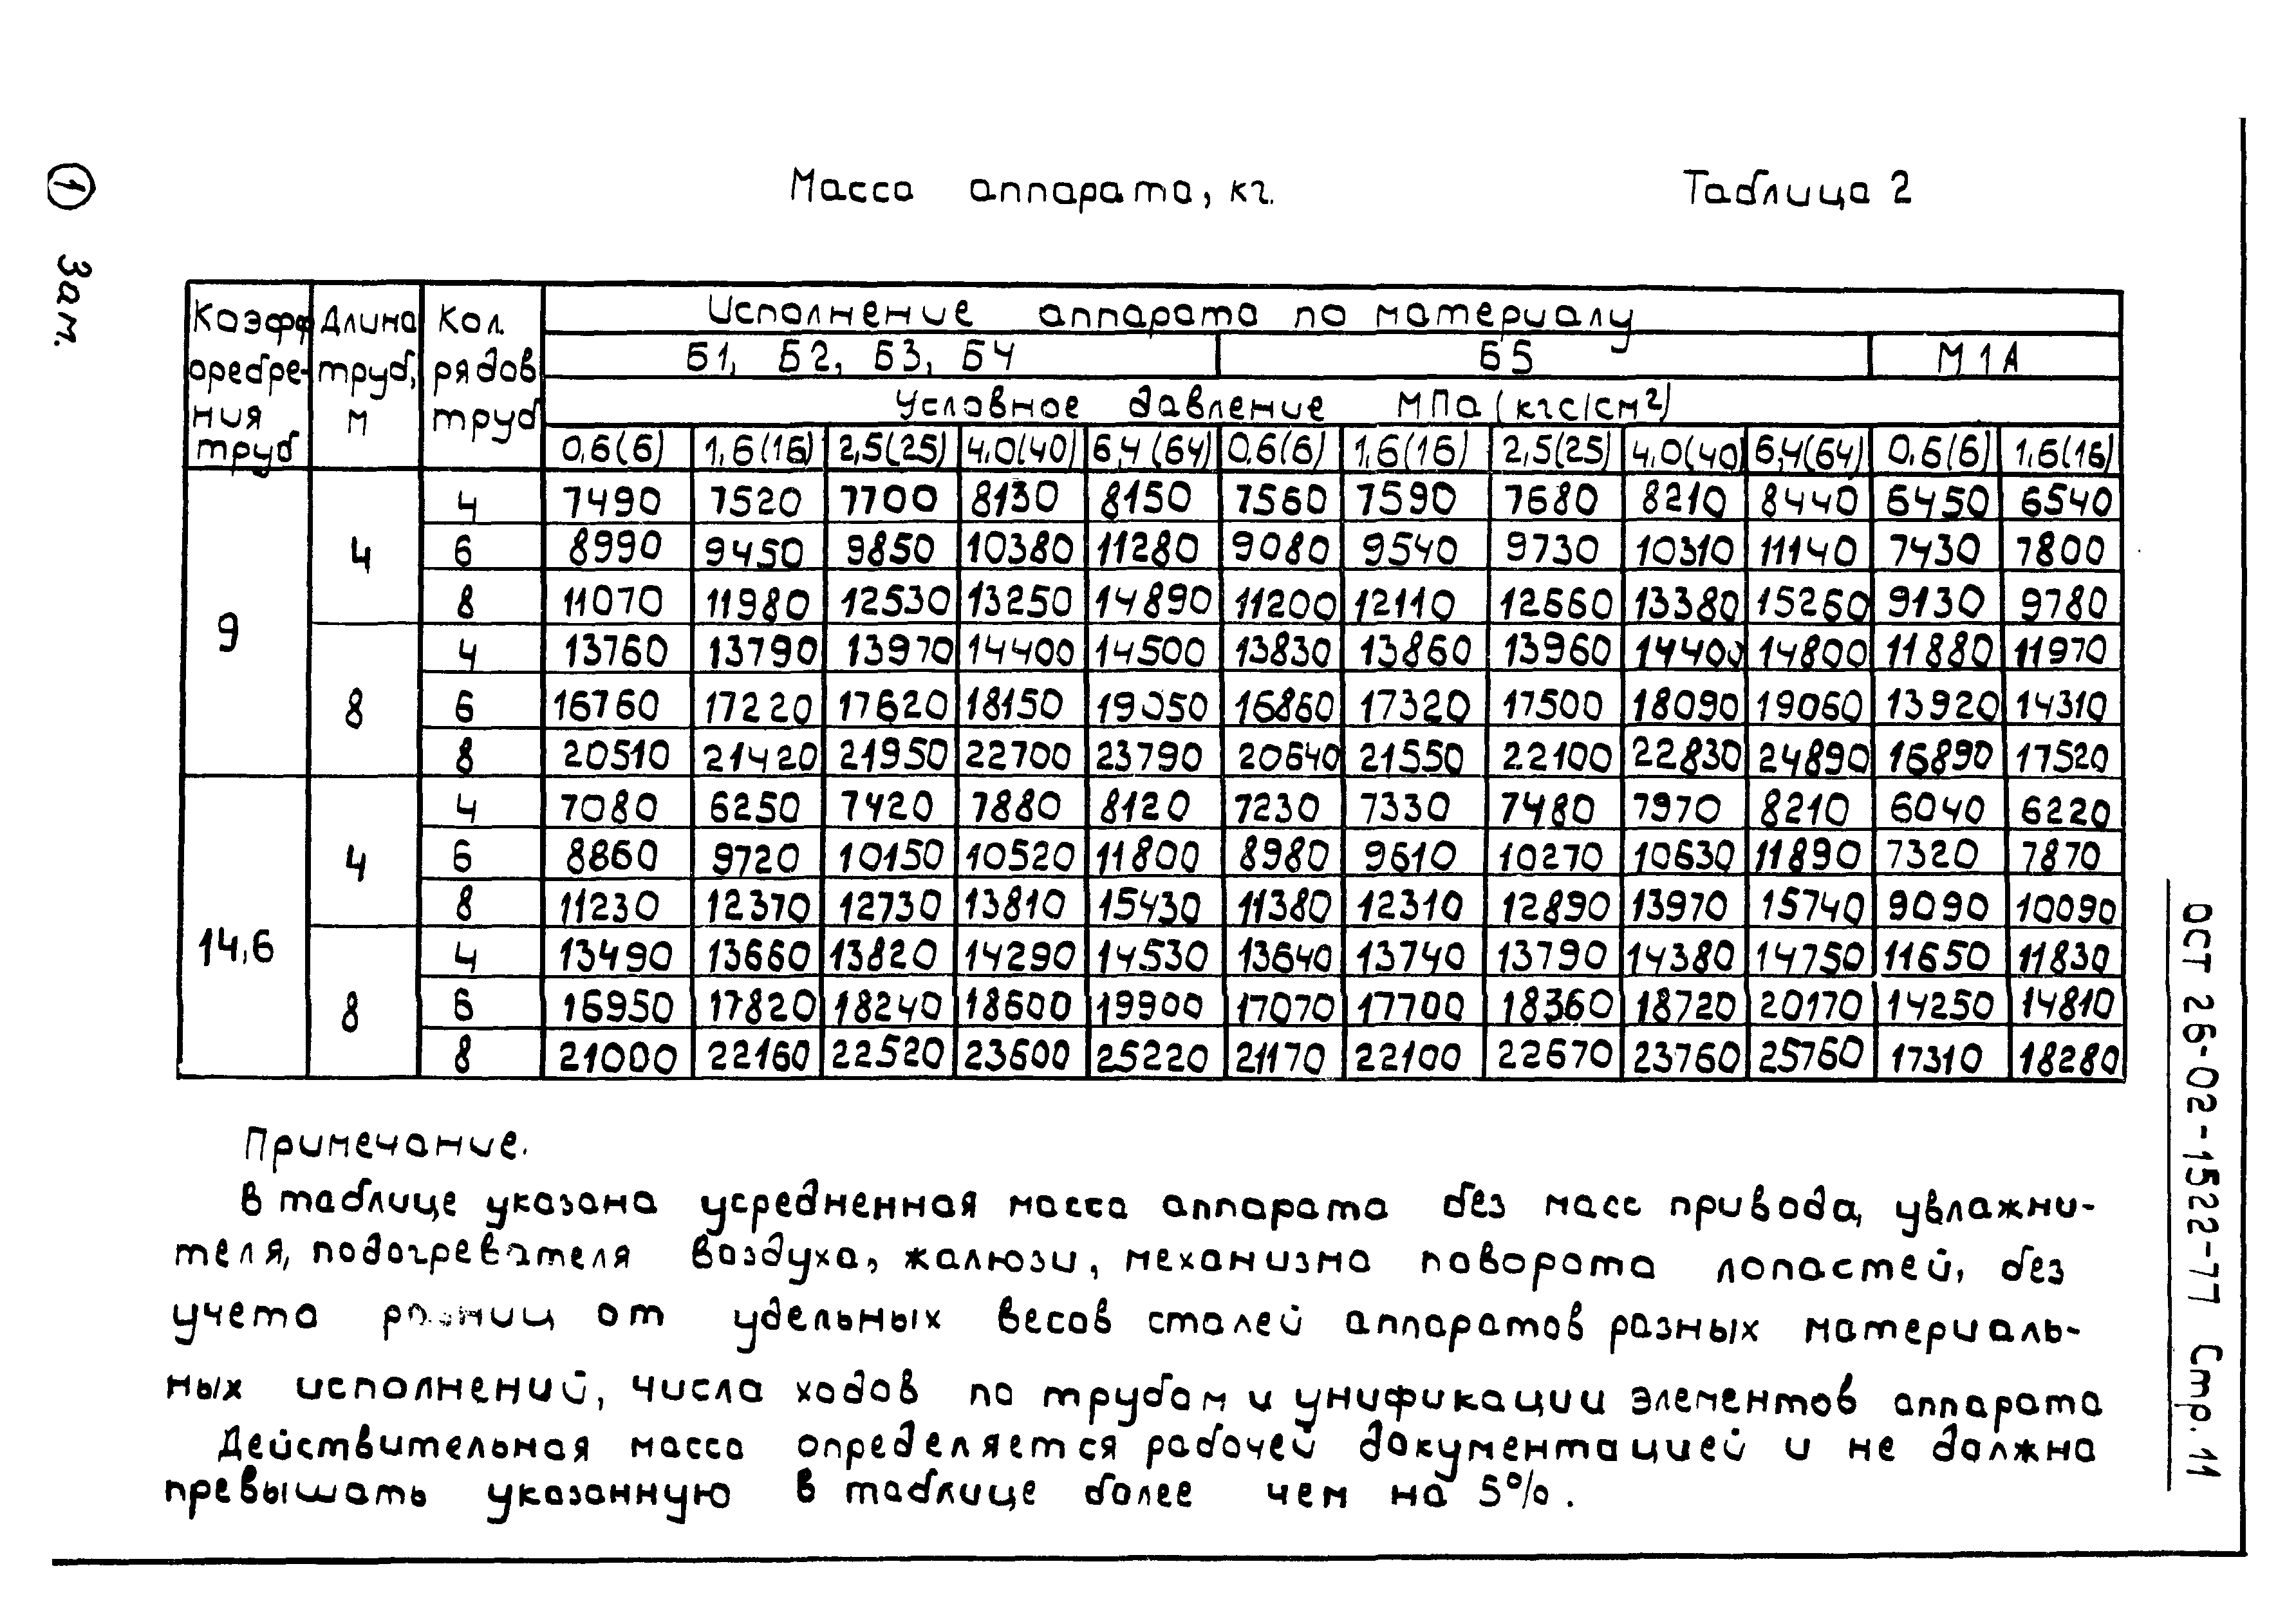 ① Зам.
Масса аппарата, кг. Таблица 2
Коэфф оребре- ния труб | Длина труб, м | Кол. рядов труб | Исполнение аппарата по материалу
Б1, Б2, Б3, Б4 | Б5 | М1А
Условное давление МПа (кгс/см²)
0,6(6) | 1,6(16) | 2,5(25) | 4,0(40) | 6,4(64) | 0,6(6) | 1,6(16) | 2,5(25) | 4,0(40) | 6,4(64) | 0,6(6) | 1,6(16)
9 | 4 | 4 | 7490 | 7520 | 7700 | 8130 | 8150 | 7560 | 7590 | 7680 | 8210 | 8440 | 6450 | 6540
6 | 8990 | 9450 | 9850 | 10380 | 11280 | 9080 | 9540 | 9730 | 10310 | 11140 | 7430 | 7800
8 | 11070 | 11980 | 12530 | 13250 | 14890 | 11200 | 12110 | 12660 | 13380 | 15260 | 9130 | 9780
8 | 4 | 13760 | 13790 | 13970 | 14400 | 14500 | 13830 | 13860 | 13960 | 14400 | 14800 | 11880 | 11970
6 | 16760 | 17220 | 17620 | 18150 | 19050 | 16860 | 17320 | 17500 | 18090 | 19060 | 13920 | 14310
8 | 20510 | 21420 | 21950 | 22700 | 23790 | 20640 | 21550 | 22100 | 22830 | 24890 | 16890 | 17520
14,6 | 4 | 4 | 7080 | 6250 | 7420 | 7880 | 8120 | 7230 | 7330 | 7480 | 7970 | 8210 | 6040 | 6220
6 | 8860 | 9720 | 10150 | 10520 | 11800 | 8980 | 9610 | 10270 | 10630 | 11890 | 7320 | 7870
8 | 11230 | 12370 | 12730 | 13810 | 15430 | 11380 | 12310 | 12890 | 13970 | 15740 | 9090 | 10090
8 | 4 | 13490 | 13660 | 13820 | 14290 | 14530 | 13640 | 13740 | 13790 | 14380 | 14750 | 11650 | 11830
6 | 16950 | 17820 | 18240 | 18600 | 19900 | 17070 | 17700 | 18360 | 18720 | 20170 | 14250 | 14810
8 | 21000 | 22160 | 22520 | 23600 | 25220 | 21170 | 22100 | 22670 | 23760 | 25760 | 17310 | 18280
Примечание.
В таблице указана усредненная масса аппарата без масс привода, увлажни-
теля, подогревателя воздуха, жалюзи, механизма поворота лопастей, без
учета разниц от удельных весов сталей аппаратов разных материаль-
ных исполнений, числа ходов по трубам и унификации элементов аппарата
Действительная масса определяется рабочей документацией и не должна
превышать указанную в таблице более чем на 5%.
ОСТ 26-02-1522-77 Стр. 11